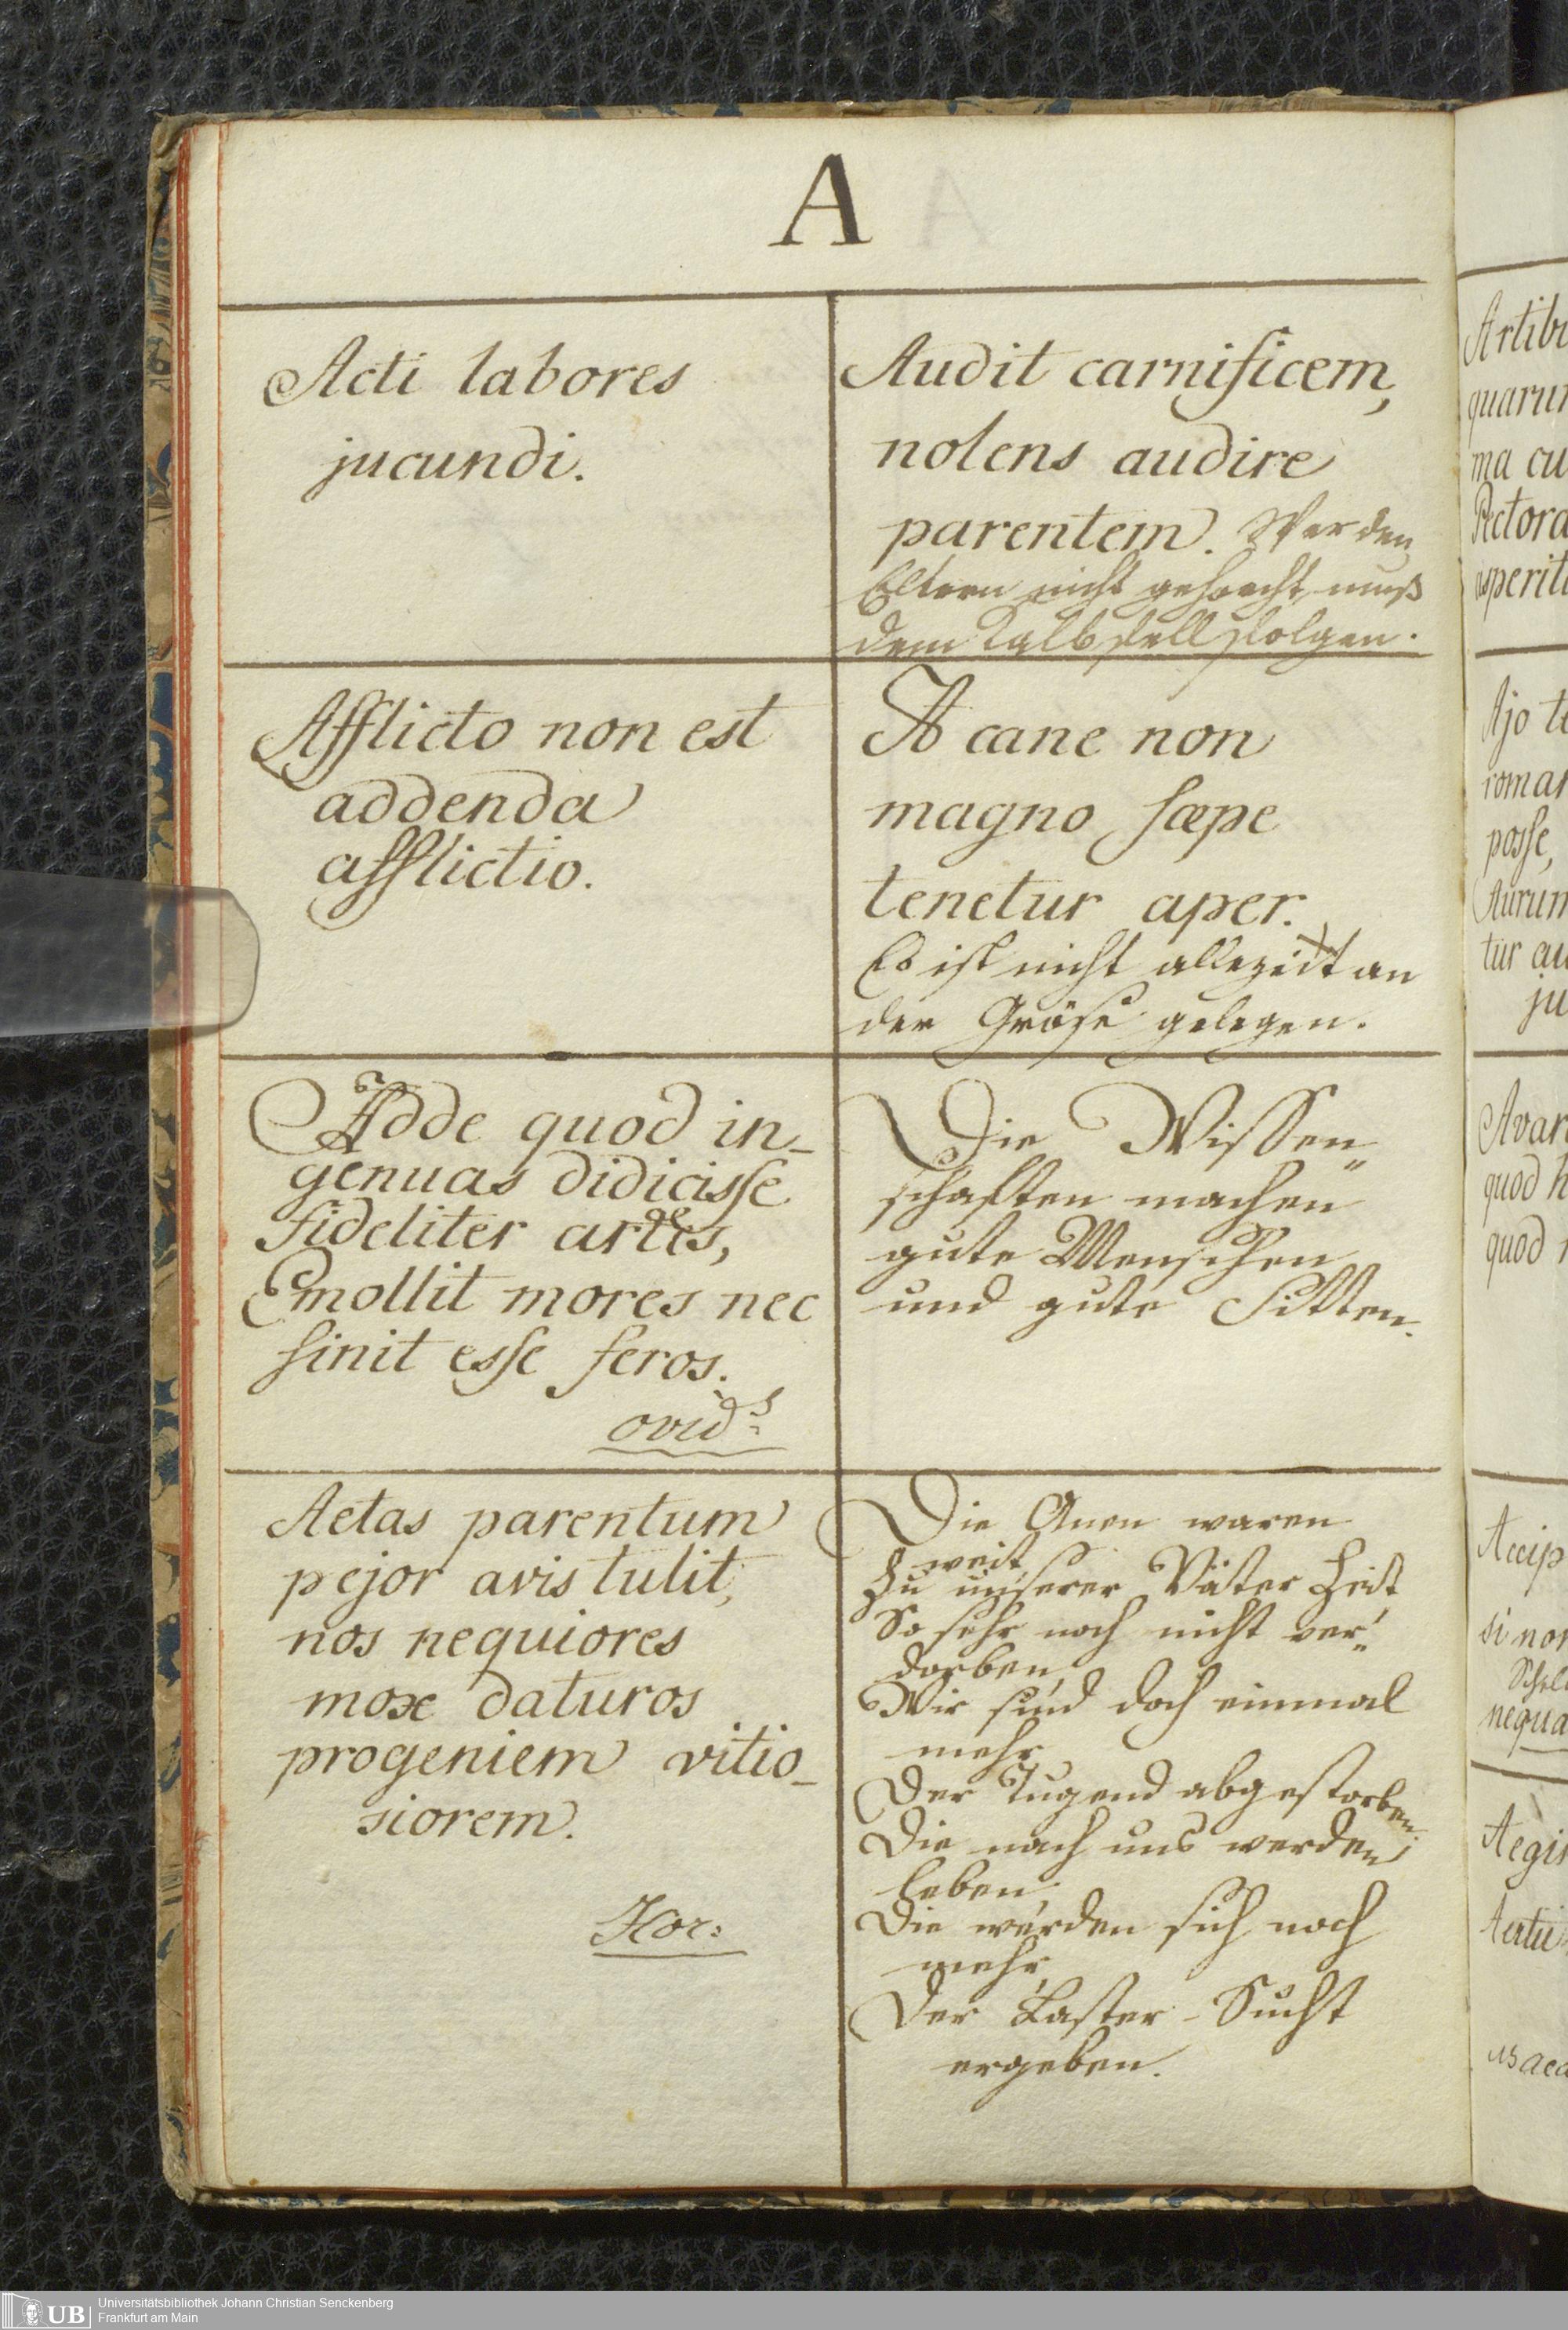 A
Acti labores
jucundi.
Audit carnificem,
nolens audire
parentem. Wer den
Eltern nicht gehorcht, muß
dem Kalbsfell folgen.
Afflicto non est
addenda
afflictio.
A cane non
magno sæpe
tenetur aper.
Es ist nicht allezeit an
der Gröse gelegen.
Adde quod in-
genuas didicisse
fideliter artes,
Emollit mores nec
sinit esse feros.
ovid.
Die Wissen„
schaften machen
gute Menschen
und gute Sitten.
Aetas parentum
pejor avis tulit,
nos nequiores
mox daturos
progeniem vitio-
siorem.
Hor:
Die Anen waren
weit
Zu unserer Väter Zeit
So sehr noch nicht ver„
dorben,
Wir sind doch einmal
mehr
Der Tugend abgestorben.
Die nach uns werden
leben,
Die werden sich noch
mehr
Der Laster-Sucht
ergeben.
Artib
quarur
ma cu
Pectora
asperit
Ajo te
roman
posse,
Aurum
tur au
ju
Avar
quod h
quod
Accip
si non
Schel
nequa
Aegi
UB
Universitätsbibliothek Johann Christian Senckenberg
Frankfurt am Main